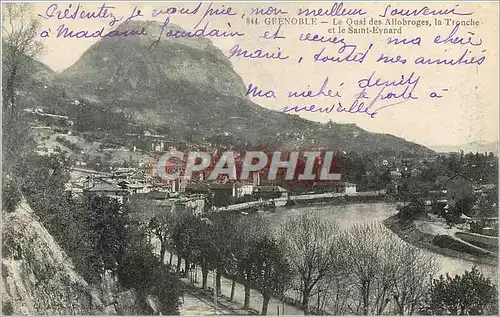 Présentez, je vous prie, mon meilleur souvenir
à Madame Jourdain et recevez, ma chère
Marie, toutes mes amitiés
Ma nichée se porte à
merveille
844. GRENOBLE - Le Quai des Allobroges, la Tronche
et le Saint-Eynard
CPARPHIL